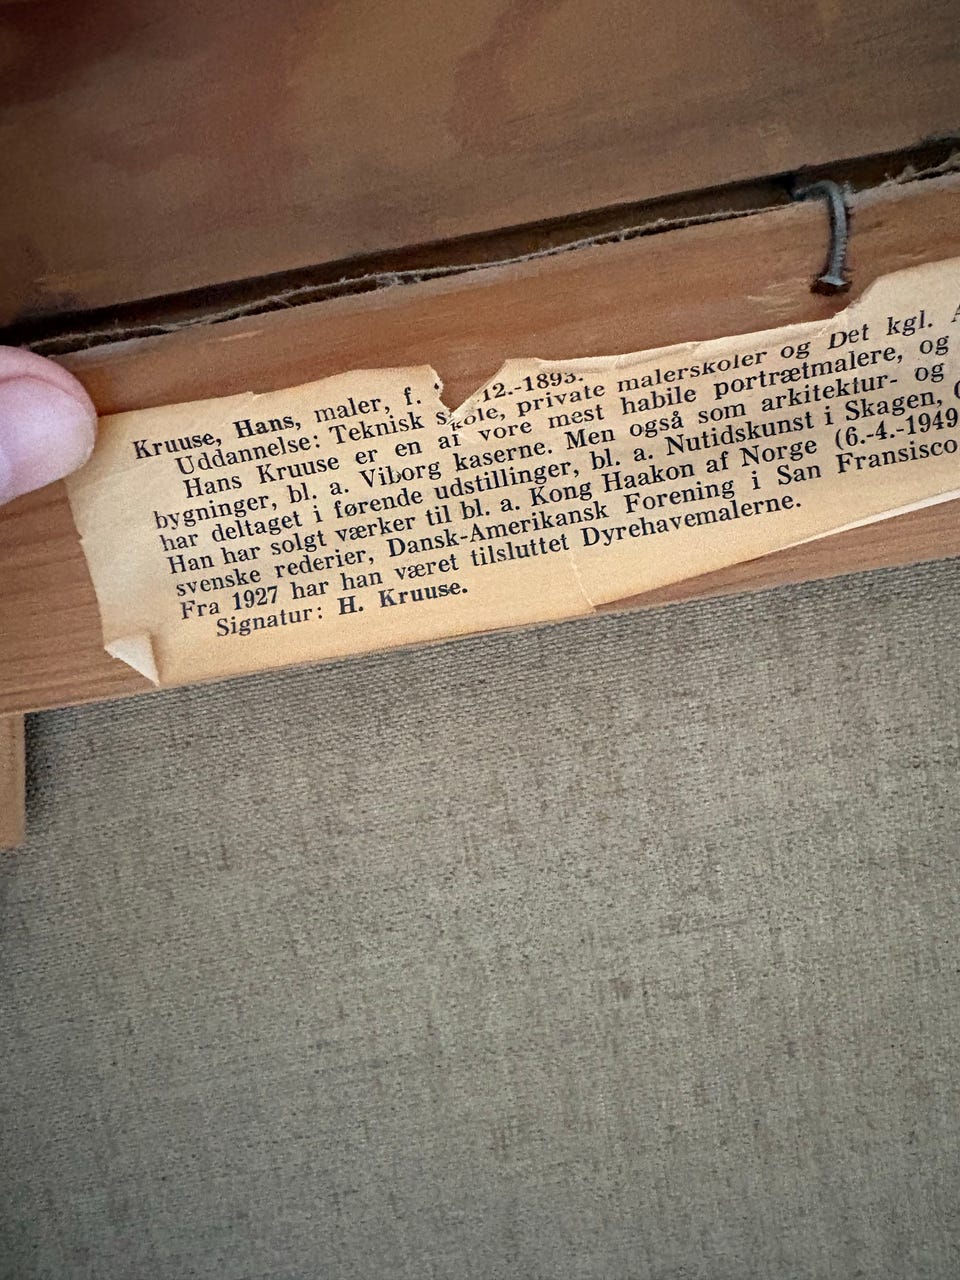 Kruuse, Hans, maler, f. 12.-1893.
Uddannelse: Teknisk Skole, private malerskoler og Det kgl.
Hans Kruuse er en af vore mest habile portrætmalere, og
bygninger, bl. a. Viborg kaserne. Men også som arkitektur- og
har deltaget i førende udstillinger, bl. a. Nutidskunst i Skagen,
Han har solgt værker til bl. a. Kong Haakon af Norge (6.-4.-1949
svenske rederier, Dansk-Amerikansk Forening i San Fransisco
Fra 1927 har han været tilsluttet Dyrehavemalerne.
Signatur: H. Kruuse.